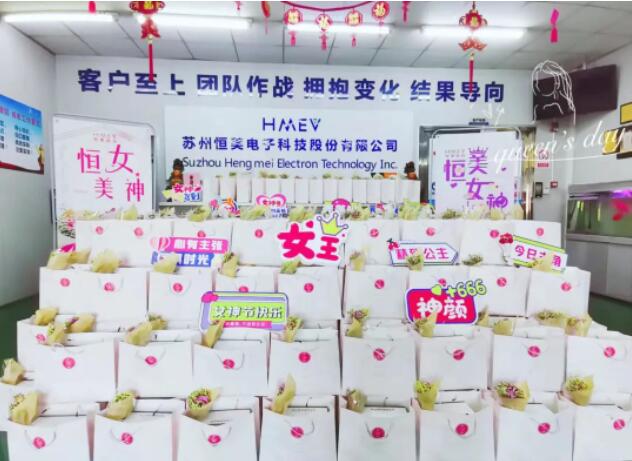 客户至上 团队作战 拥抱变化 结果导向
HMEV
苏州恒美电子科技股份有限公司
Suzhou Hengmei Electron Technology Inc.
queen's day
恒女
美神
恒美
女神
女王
时光
公主
女神节快乐
+666
神颜